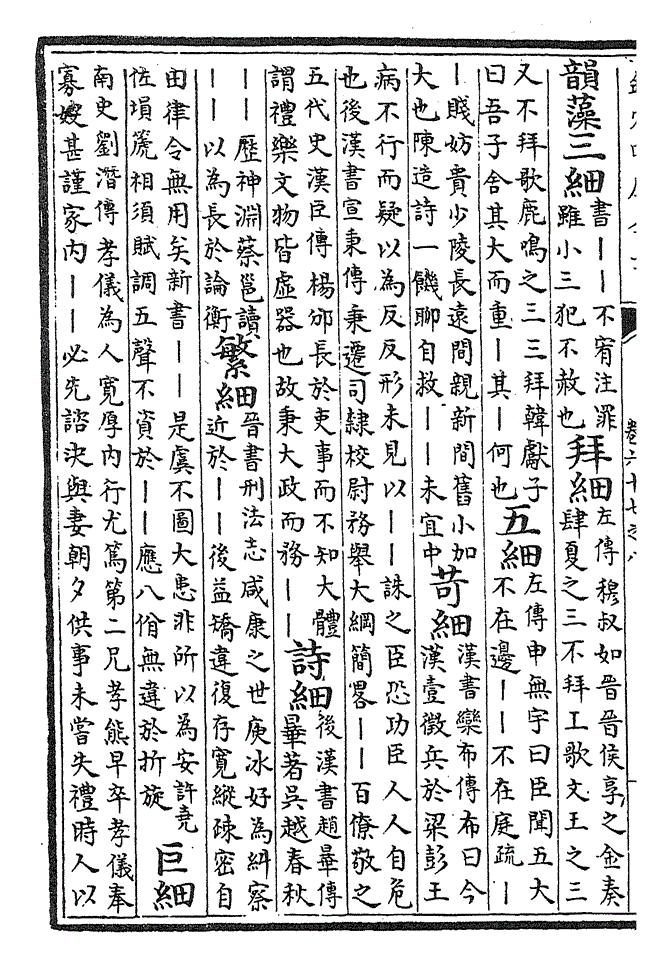 卷六十七之八
韻藻三細書——不宥注罪雖小三犯不赦也拜細左傳穆叔如晉晉侯享之金奏肆夏之三不拜工歌文王之三
又不拜歌鹿鳴之三三拜韓獻子曰吾子舍其大而重—其—何也五細左傳申無宇曰臣聞五大不在邊——不在庭疏—
—賤妨貴少陵長遠間親新間舊小加大也陳造詩一饑聊自救——未宜中苛細漢書欒布傳布曰今漢壹徵兵於梁彭王
病不行而疑以為反反形未見以——誅之臣恐功臣人人自危也後漢書宣秉傳秉遷司隸校尉務舉大綱簡畧——百僚敬之
五代史漢臣傳楊邠長於吏事而不知大體謂禮樂文物皆虛器也故秉大政而務——詩細後漢書趙曄傳曄著吳越春秋
——歷神淵蔡邕讀——以為長於論衡繁細晉書刑法志咸康之世庾冰好為糾察近於——後益矯違復存寬縱疎密自
由律令無用矣新書——是虞不圖大患非所以為安許堯佐塤箎相須賦調五聲不資於——應八佾無違於折旋巨細
南史劉潛傳孝儀為人寬厚內行尤篤第二兄孝熊早卒孝儀奉寡嫂甚謹家內——必先諮決與妻朝夕供事未嘗失禮時人以